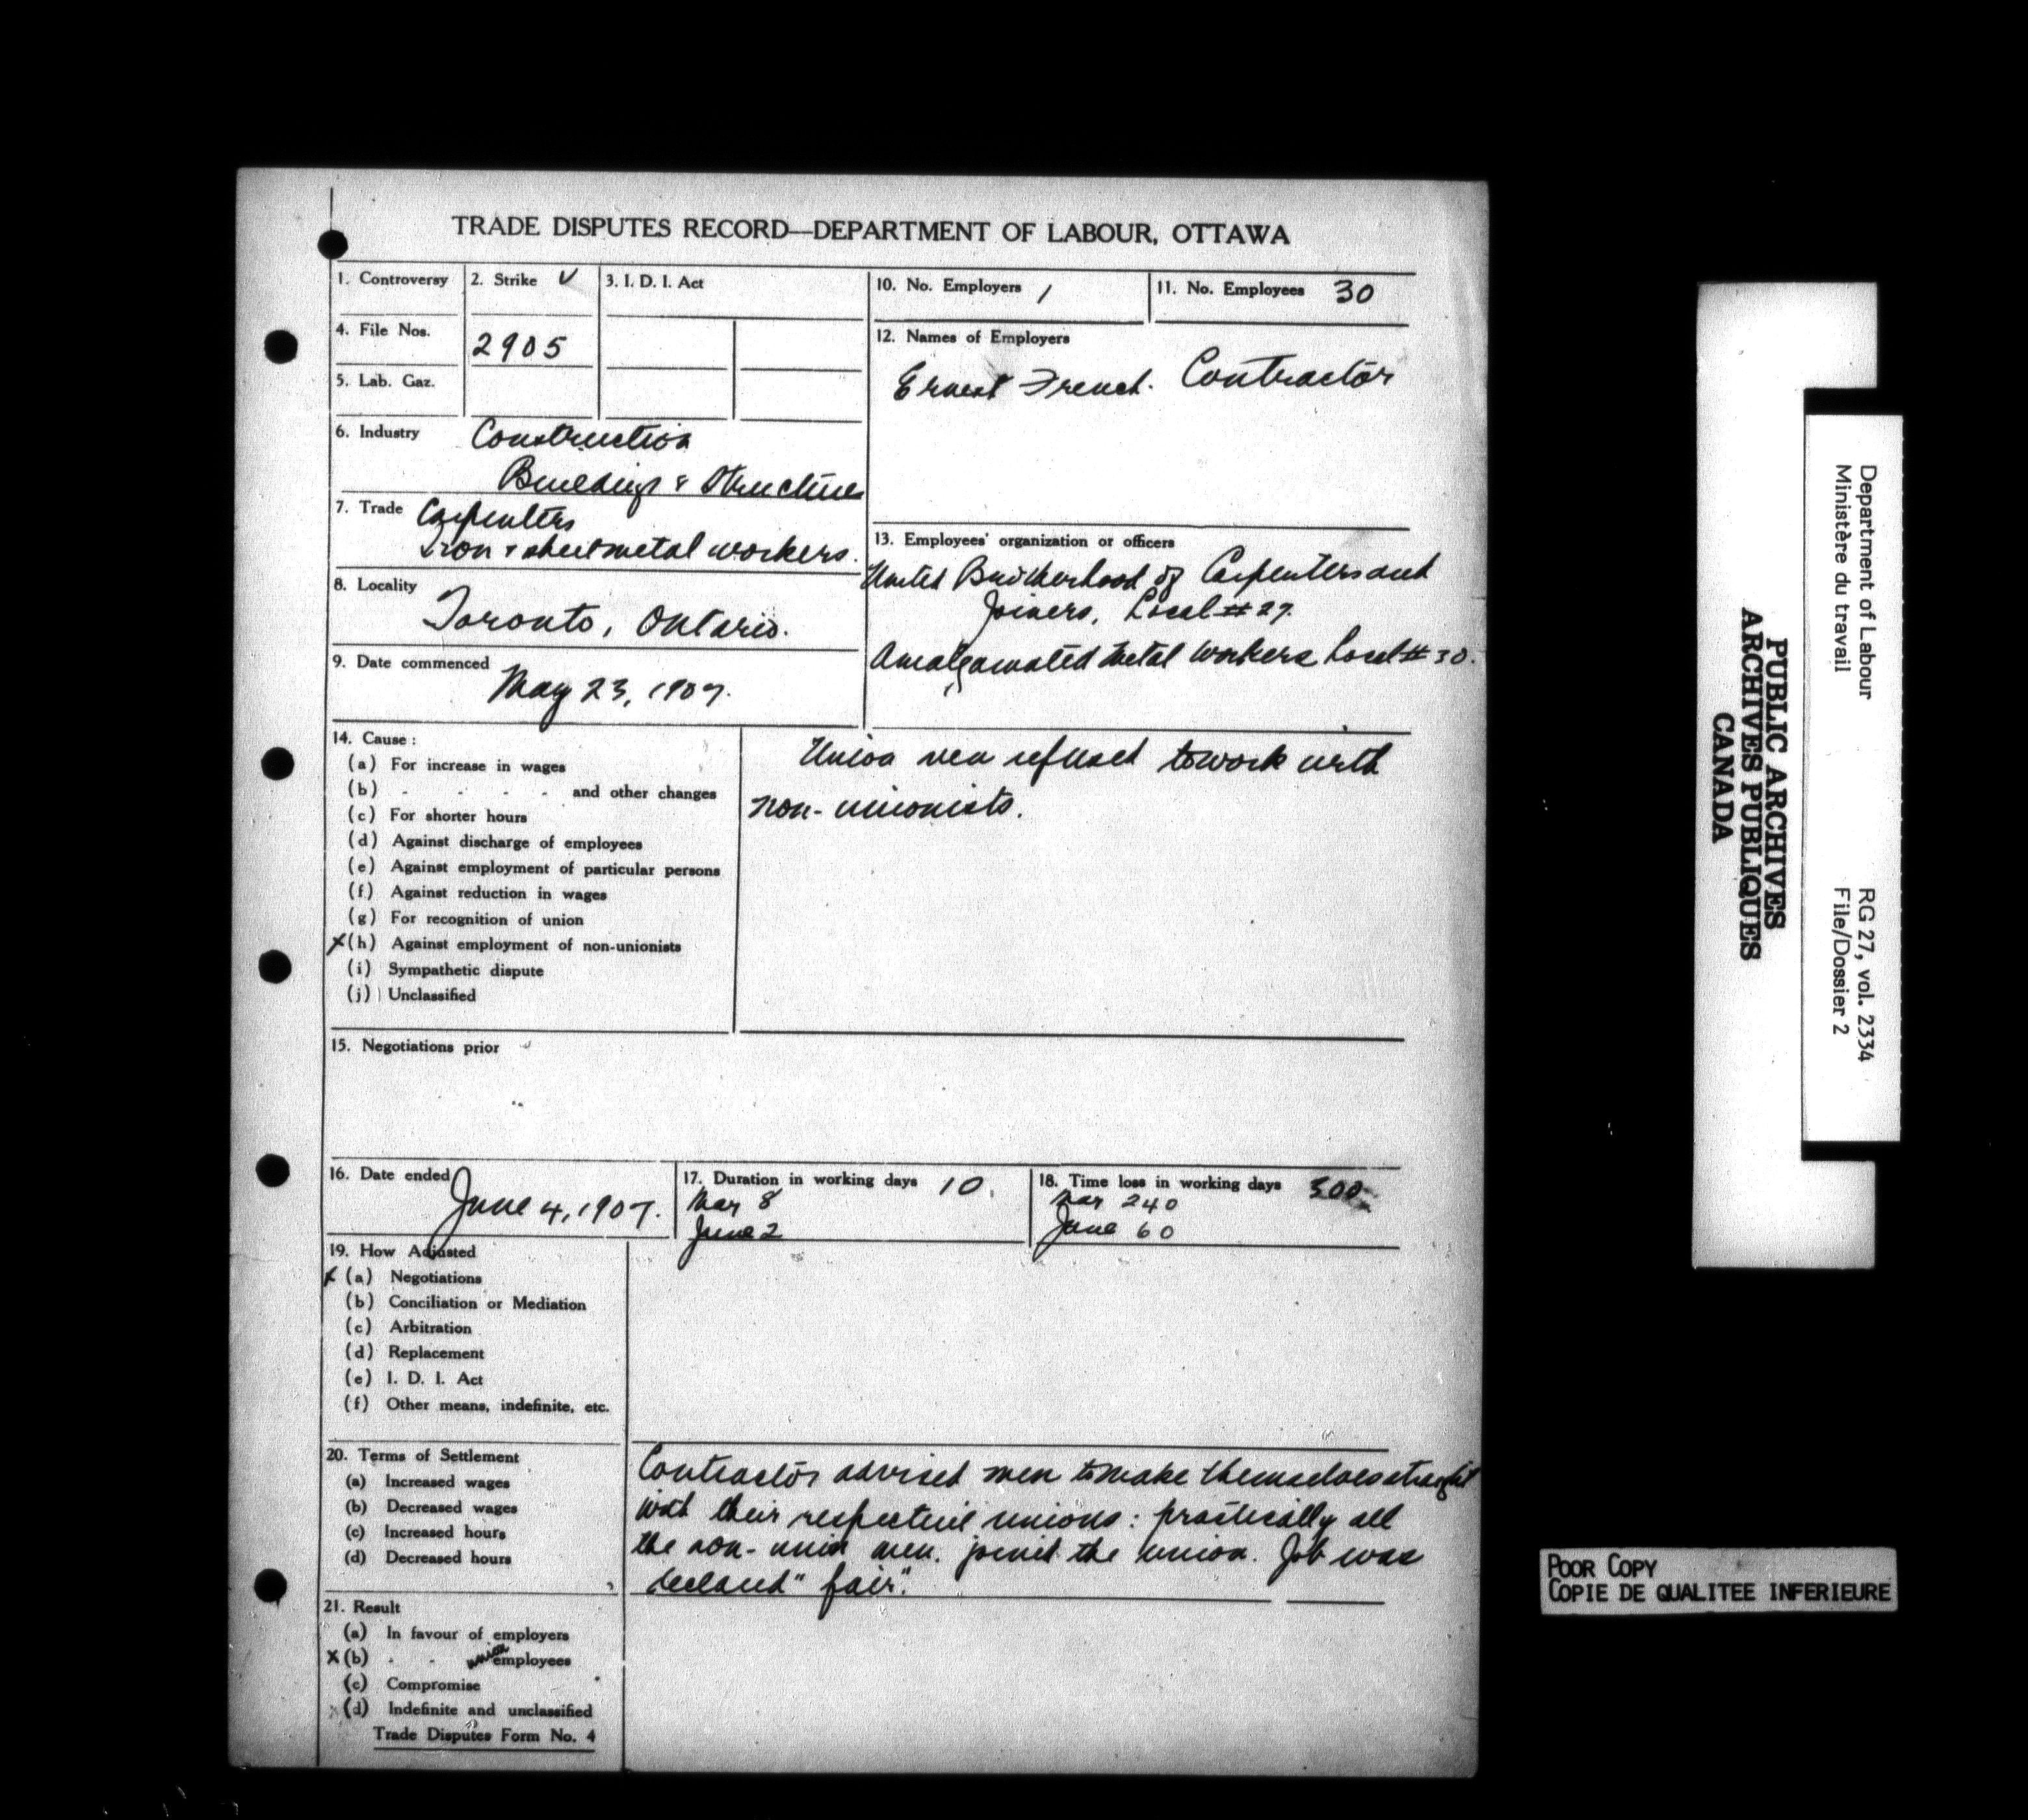 TRADE DISPUTES RECORD—DEPARTMENT OF LABOUR, OTTAWA
1. Controversy
2. Strike ✓
3. I. D. I. Act
4. File Nos. 2905
5. Lab. Gaz.
6. Industry Construction
Buildings & Structures
7. Trade Carpenters
Iron & sheet metal workers.
8. Locality
Toronto, Ontario.
9. Date commenced
May 23, 1907.
10. No. Employers 1
11. No. Employees 30
12. Names of Employers
Ernest French. Contractor
13. Employees' organization or officers
United Brotherhood of Carpenters and
Joiners, Local #27.
Amalgamated Metal Workers Local #30.
14. Cause:
(a) For increase in wages
(b) - - - - and other changes
(c) For shorter hours
(d) Against discharge of employees
(e) Against employment of particular persons
(f) Against reduction in wages
(g) For recognition of union
x (h) Against employment of non-unionists
(i) Sympathetic dispute
(j) Unclassified
Union men refused to work with
non-unionists.
15. Negotiations prior
16. Date ended
June 4, 1907.
17. Duration in working days 10.
Mar 8
June 2
18. Time loss in working days 300
Mar 240
June 60
19. How Adjusted
x (a) Negotiations
(b) Conciliation or Mediation
(c) Arbitration
(d) Replacement
(e) I. D. I. Act
(f) Other means, indefinite, etc.
20. Terms of Settlement
(a) Increased wages
(b) Decreased wages
(c) Increased hours
(d) Decreased hours
Contractor advised men to make themselves straight
with their respective unions: practically all
the non-union men. joined the union. Job was
declared "fair".
21. Result
(a) In favour of employers
x (b) - - union employees
(c) Compromise
(d) Indefinite and unclassified
Trade Disputes Form No. 4
Department of Labour
Ministère du travail
RG 27, vol. 2334
File/Dossier 2
PUBLIC ARCHIVES
ARCHIVES PUBLIQUES
CANADA
POOR COPY
COPIE DE QUALITEE INFERIEURE